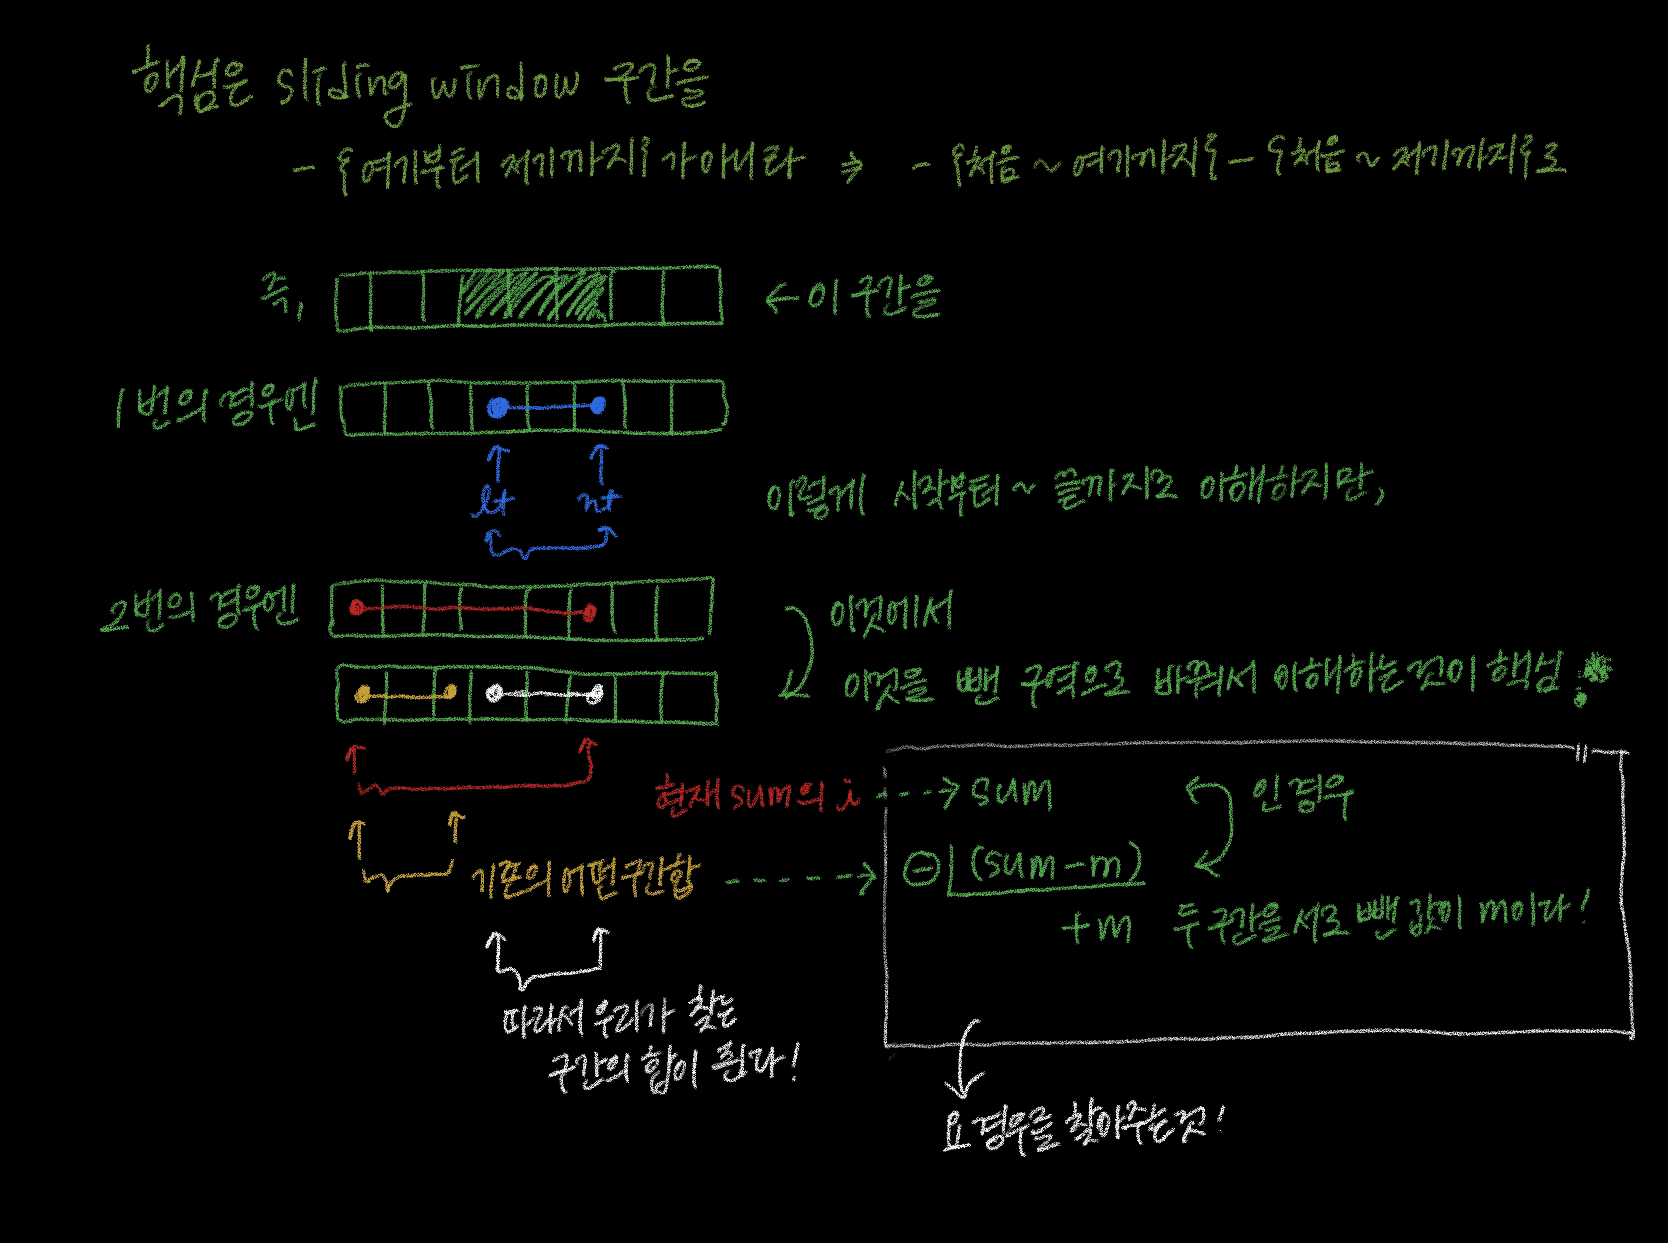 핵심은 sliding window 구간을
- {여기부터 저기까지} 가 아니라 ⇒ - {처음 ~ 여기까지} - {처음 ~ 저기까지}로
즉,
← 이 구간을
1번의 경우엔
lt rt
이렇게 시작부터 ~ 끝까지로 이해하지만,
2번의 경우엔
이것에서
이것을 뺀 구역으로 바꿔서 이해하는것이 핵심!
현재 sum의 i ---> sum
인 경우
기존의 어떤구간합 -----> ⊖ (sum-m)
+m 두 구간을 서로 뺀 값이 m이다!
따라서 우리가 찾는
구간의 합이 된다!
요 경우를 찾아주는것!